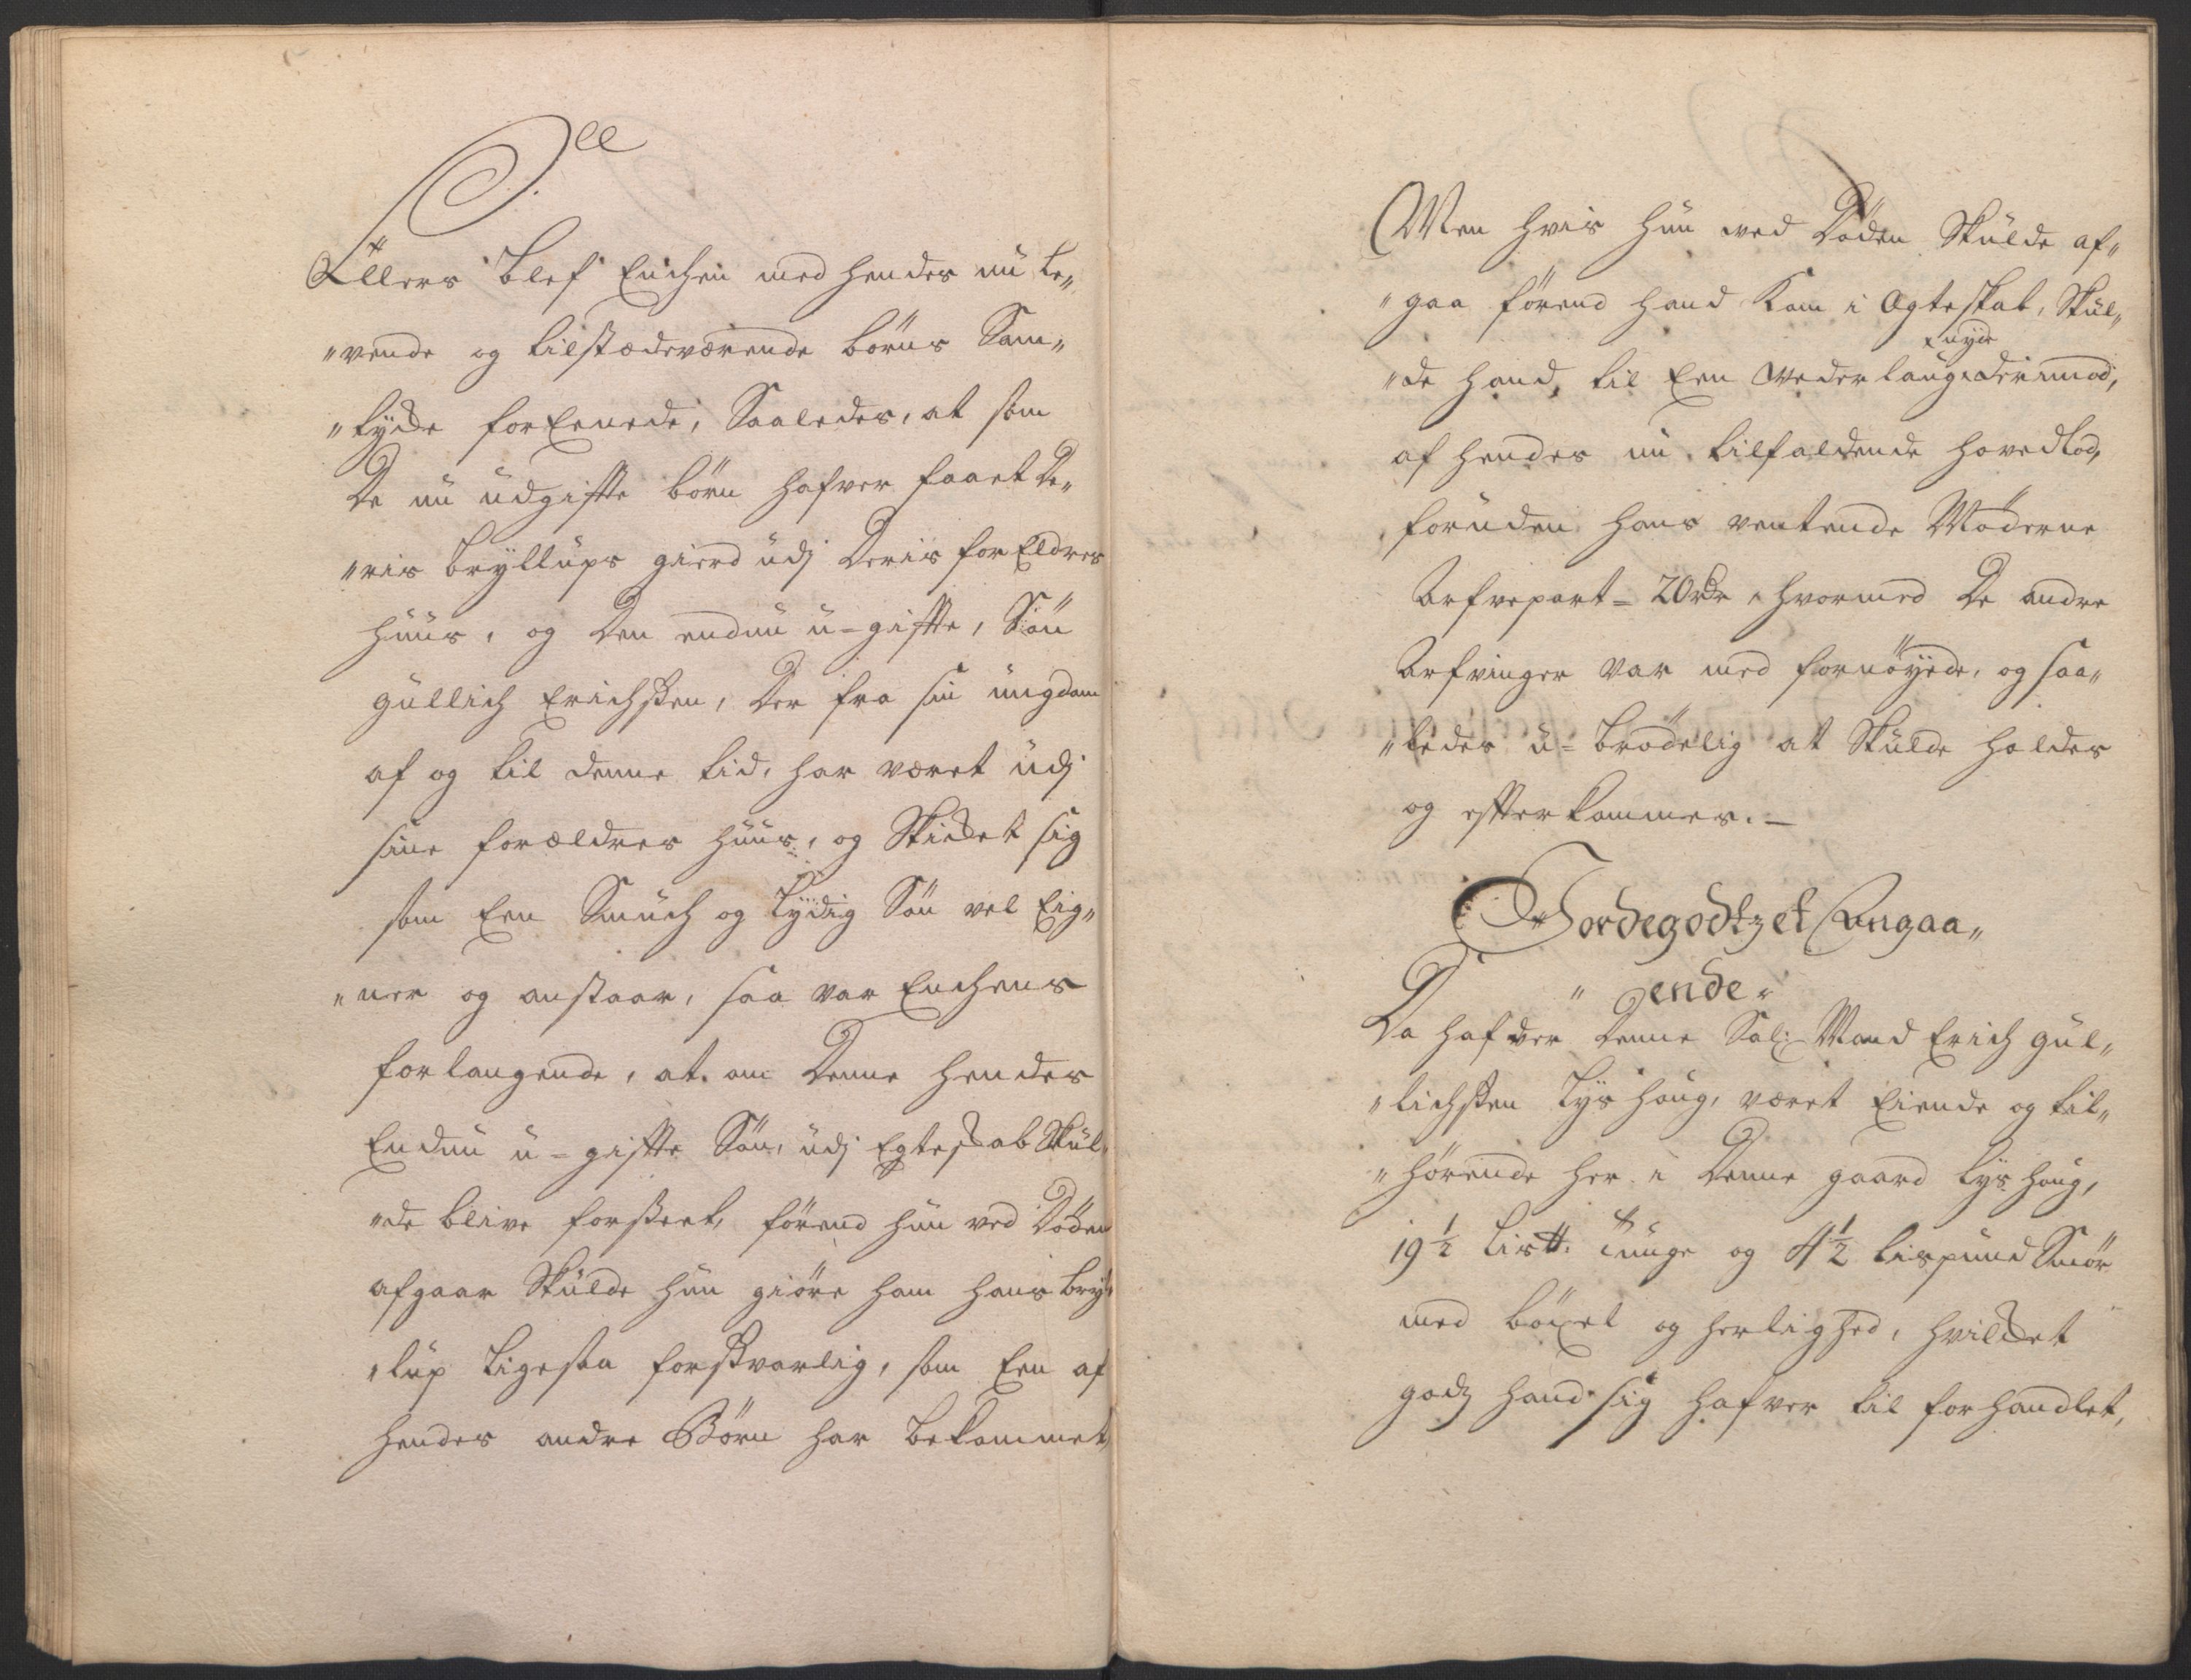 Ellers blef Enchen med hendes nu le„
„vende og tilstædeværende børns Sam„
„tyche forEenede, Saaledes, at som
De nu udgiffte børn hafver faaet De„
„ris bryllups gierd udj Deris forEldres
huus, og Den endnu u-giffte, Søn
Gullich Erichssen, Der fra sin ungdom
af og til denne tid, har været udj
sine forældres huus, og Skicket sig
som Een Smuch og lydig Søn vel Eig„
„ner og anstaar, saa var Enchens
forlangende, at om Denne hendes
Endnu u-giffte Søn, udj Egteskab Skul„
„de blive forseet, førend hun ved Døden
afgaar Skulde hun giøre ham hans bry„
„lup ligesaa forsvarlig, som Een af
hendes andre Børn har bekommet,
Men hvis hun ved Døden Skulde af„
„gaa førend hand Kom i Ægteskab, Skul„
„de hand, til Een Vederlaug derimod, nyde
af hendes nu tilfaldende hovedlod,
foruden hans ventende Møderne
Arfvepart = 20 rdr, hvormed De andre
Arfvinger var med fornøyede, og saa„
„ledes u-brødelig at Skulde holdes
og efterkommes. —
Jordegodtzet Angaa„
„ende.
Da hafver Denne Sal: Mand Erich Gul„
„lichssen Lyshoug, været Eiende og til„
„hørende her i Denne gaard Lyshoug,
19½ Lis℔: Tunge og 4½ Lispund Smør
med böxel og herlighed, hvilcket
godz hand sig hafver til forhandlet,